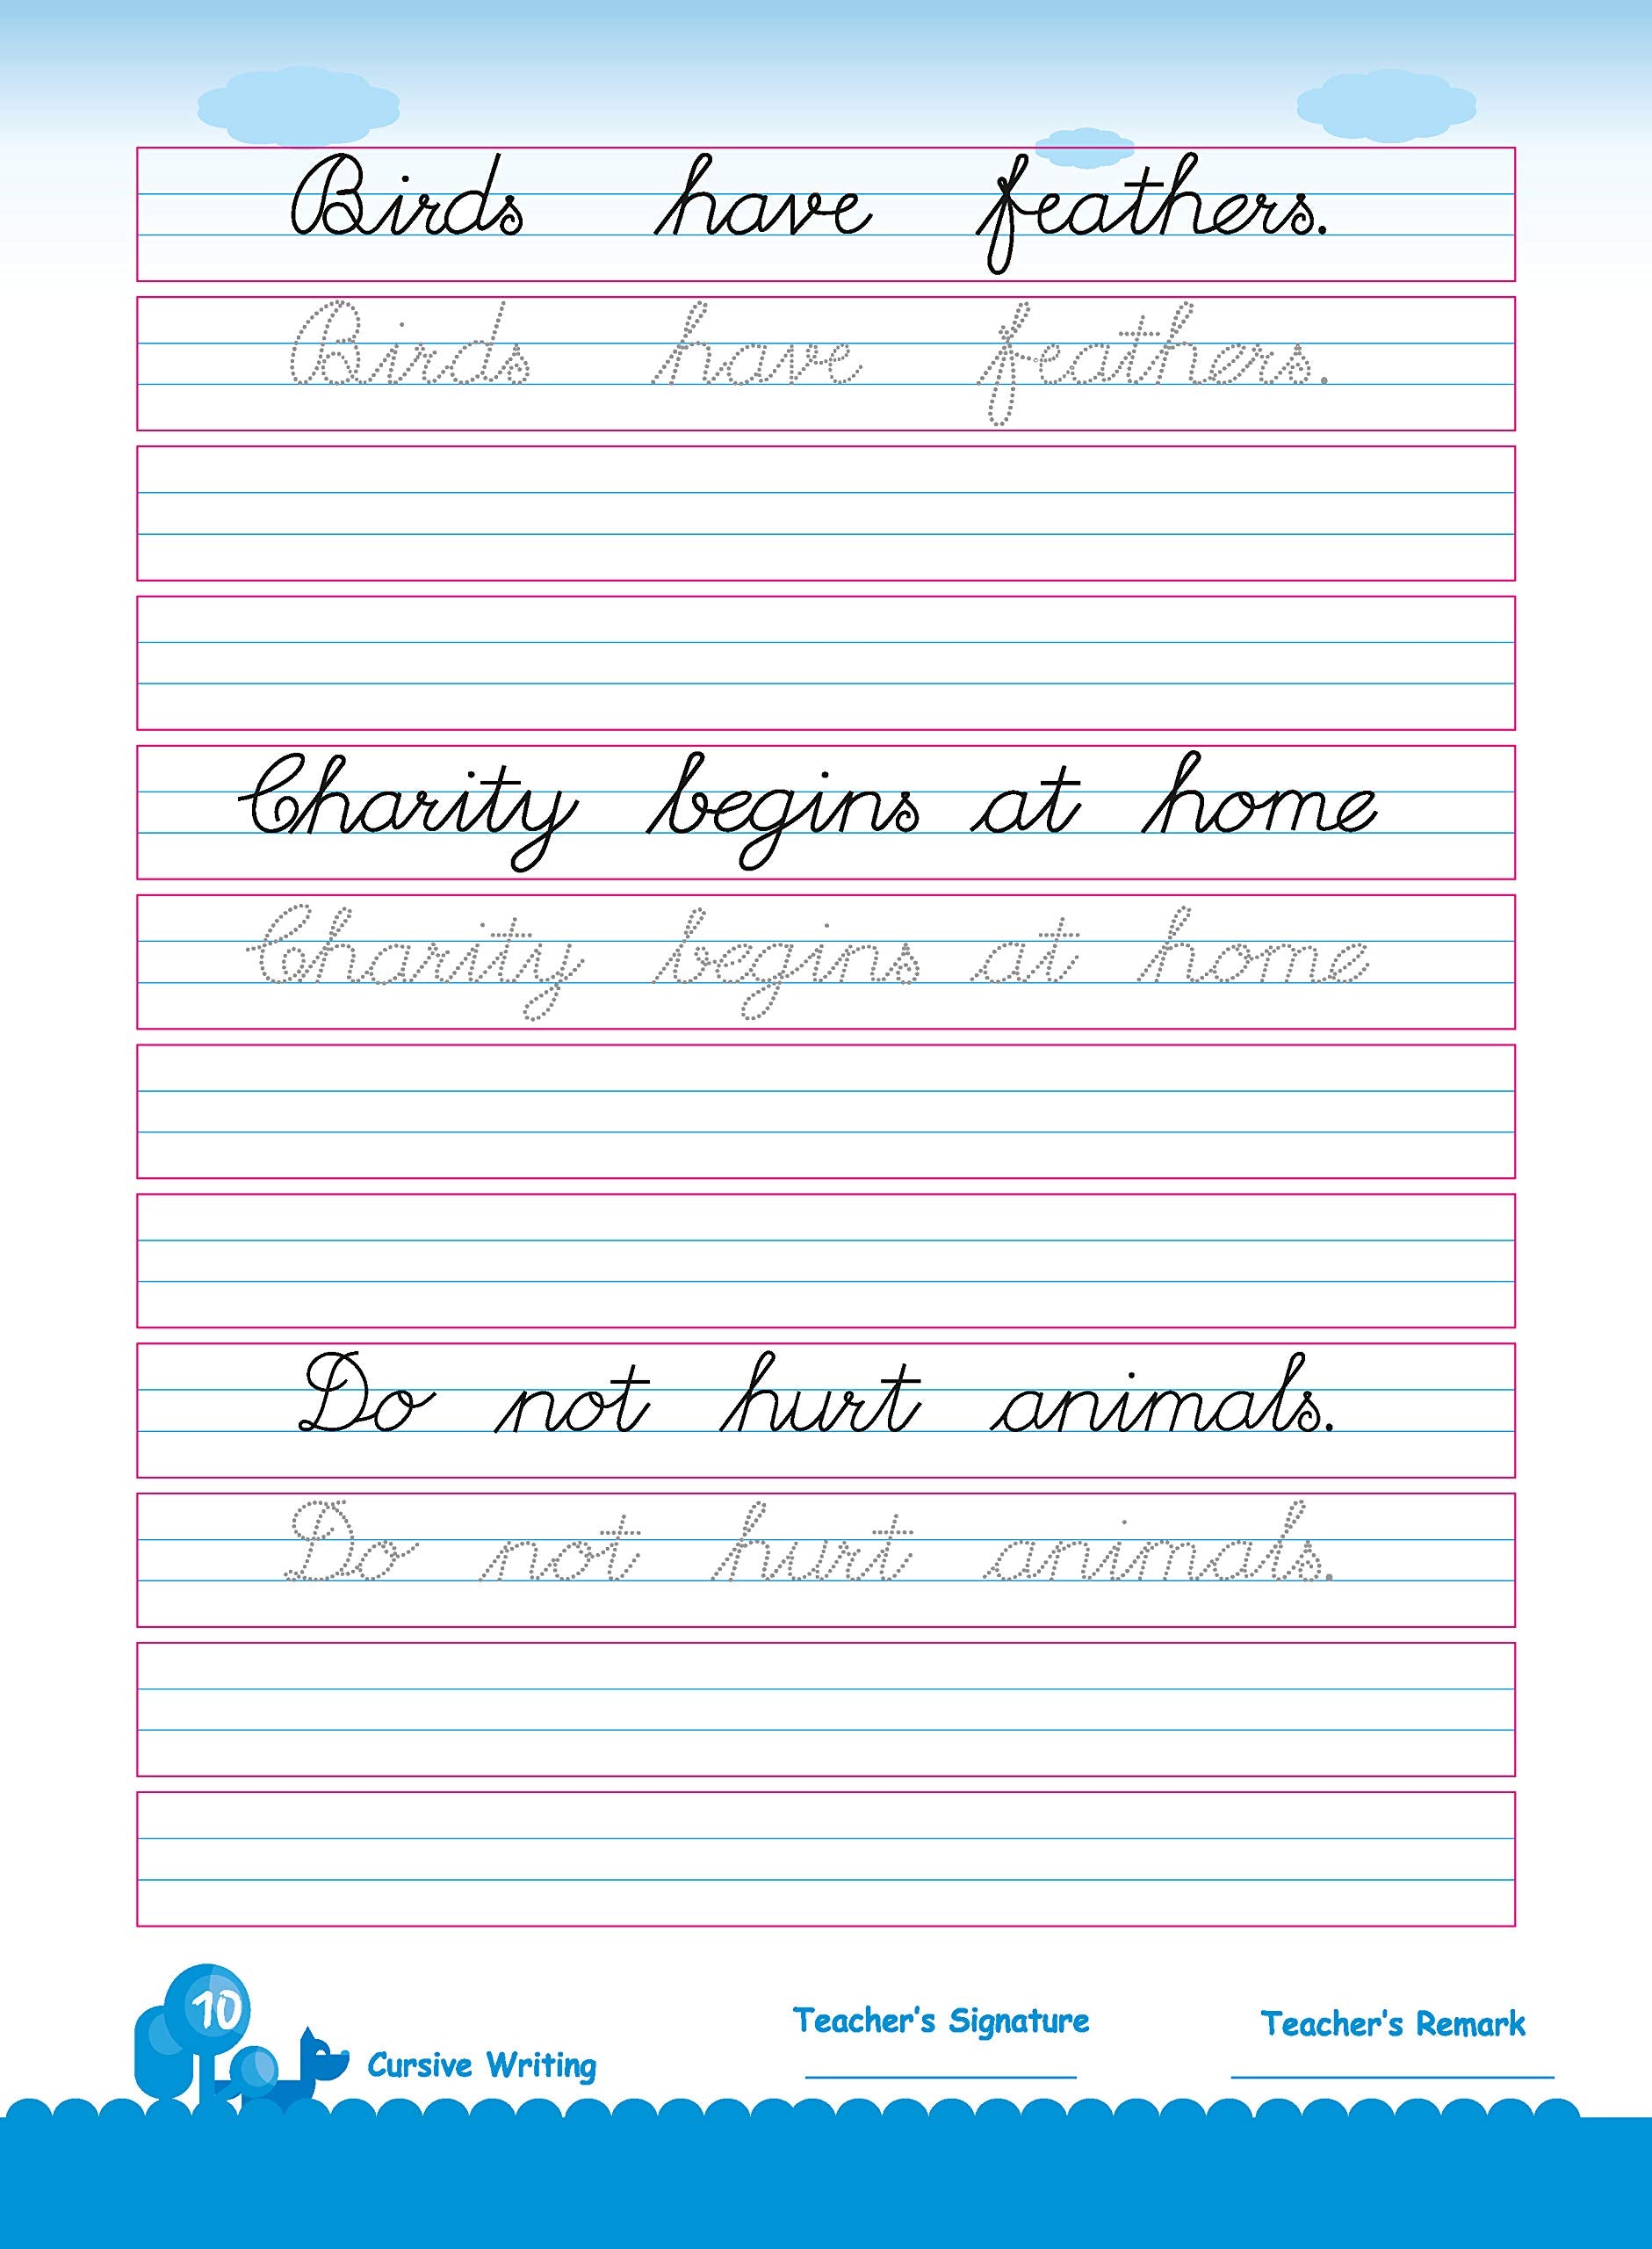 Birds have feathers.
Birds have feathers.
Charity begins at home
Charity begins at home
Do not hurt animals.
Do not hurt animals.
10
Cursive Writing
Teacher's Signature
Teacher's Remark